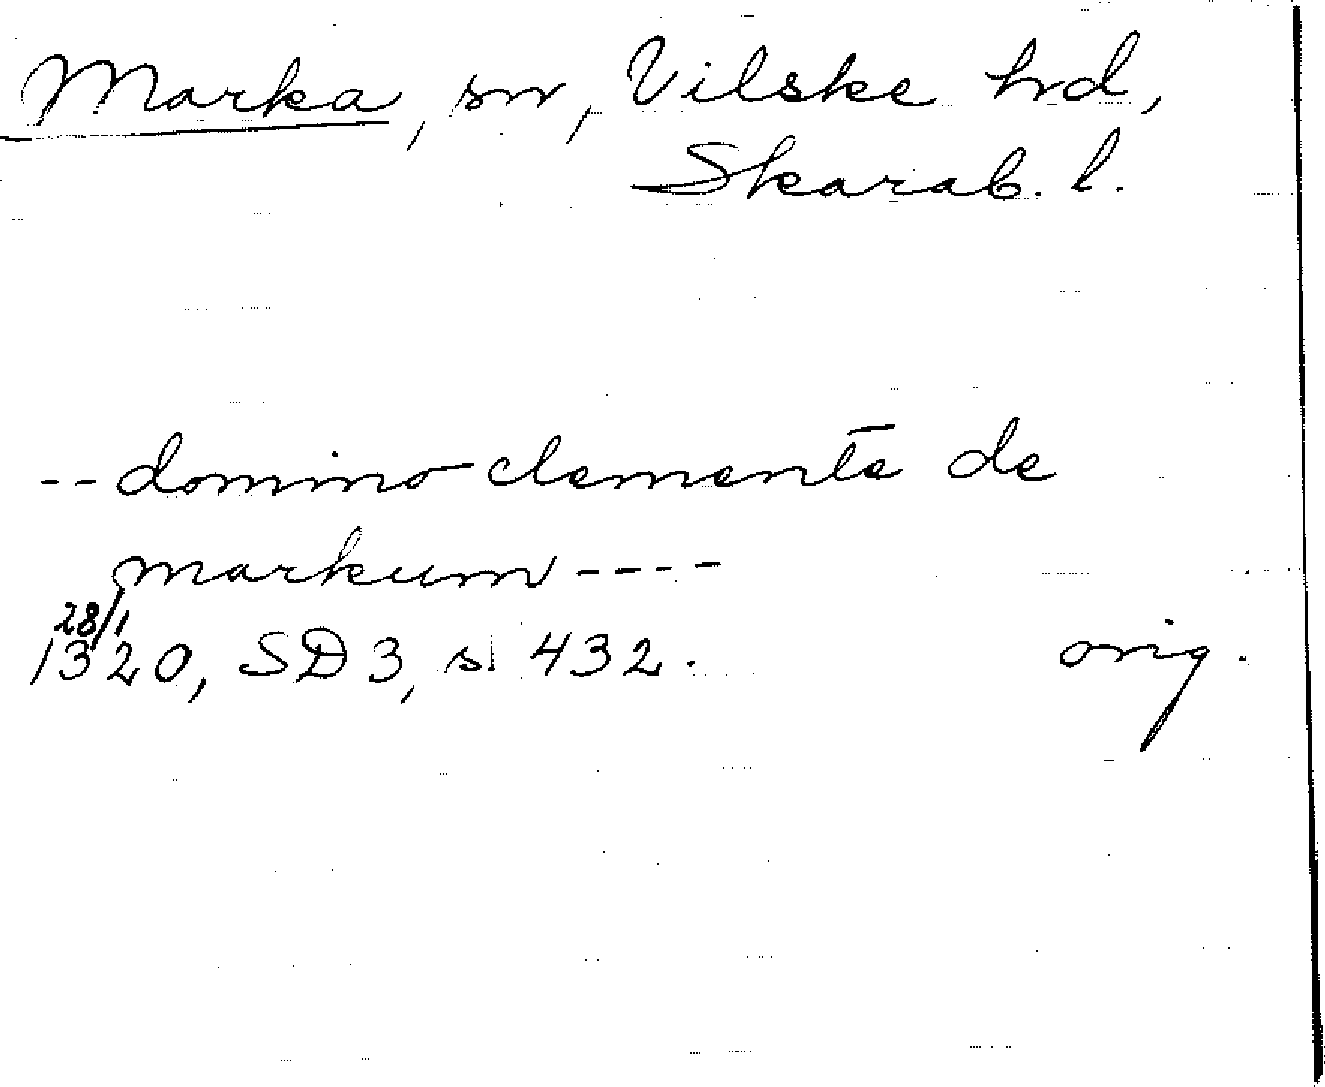 Marka, sn, Vilske hd,
Skarab. l.
-- domino clemente de
markum ----
28/1
1320, SD 3, s 432. orig.